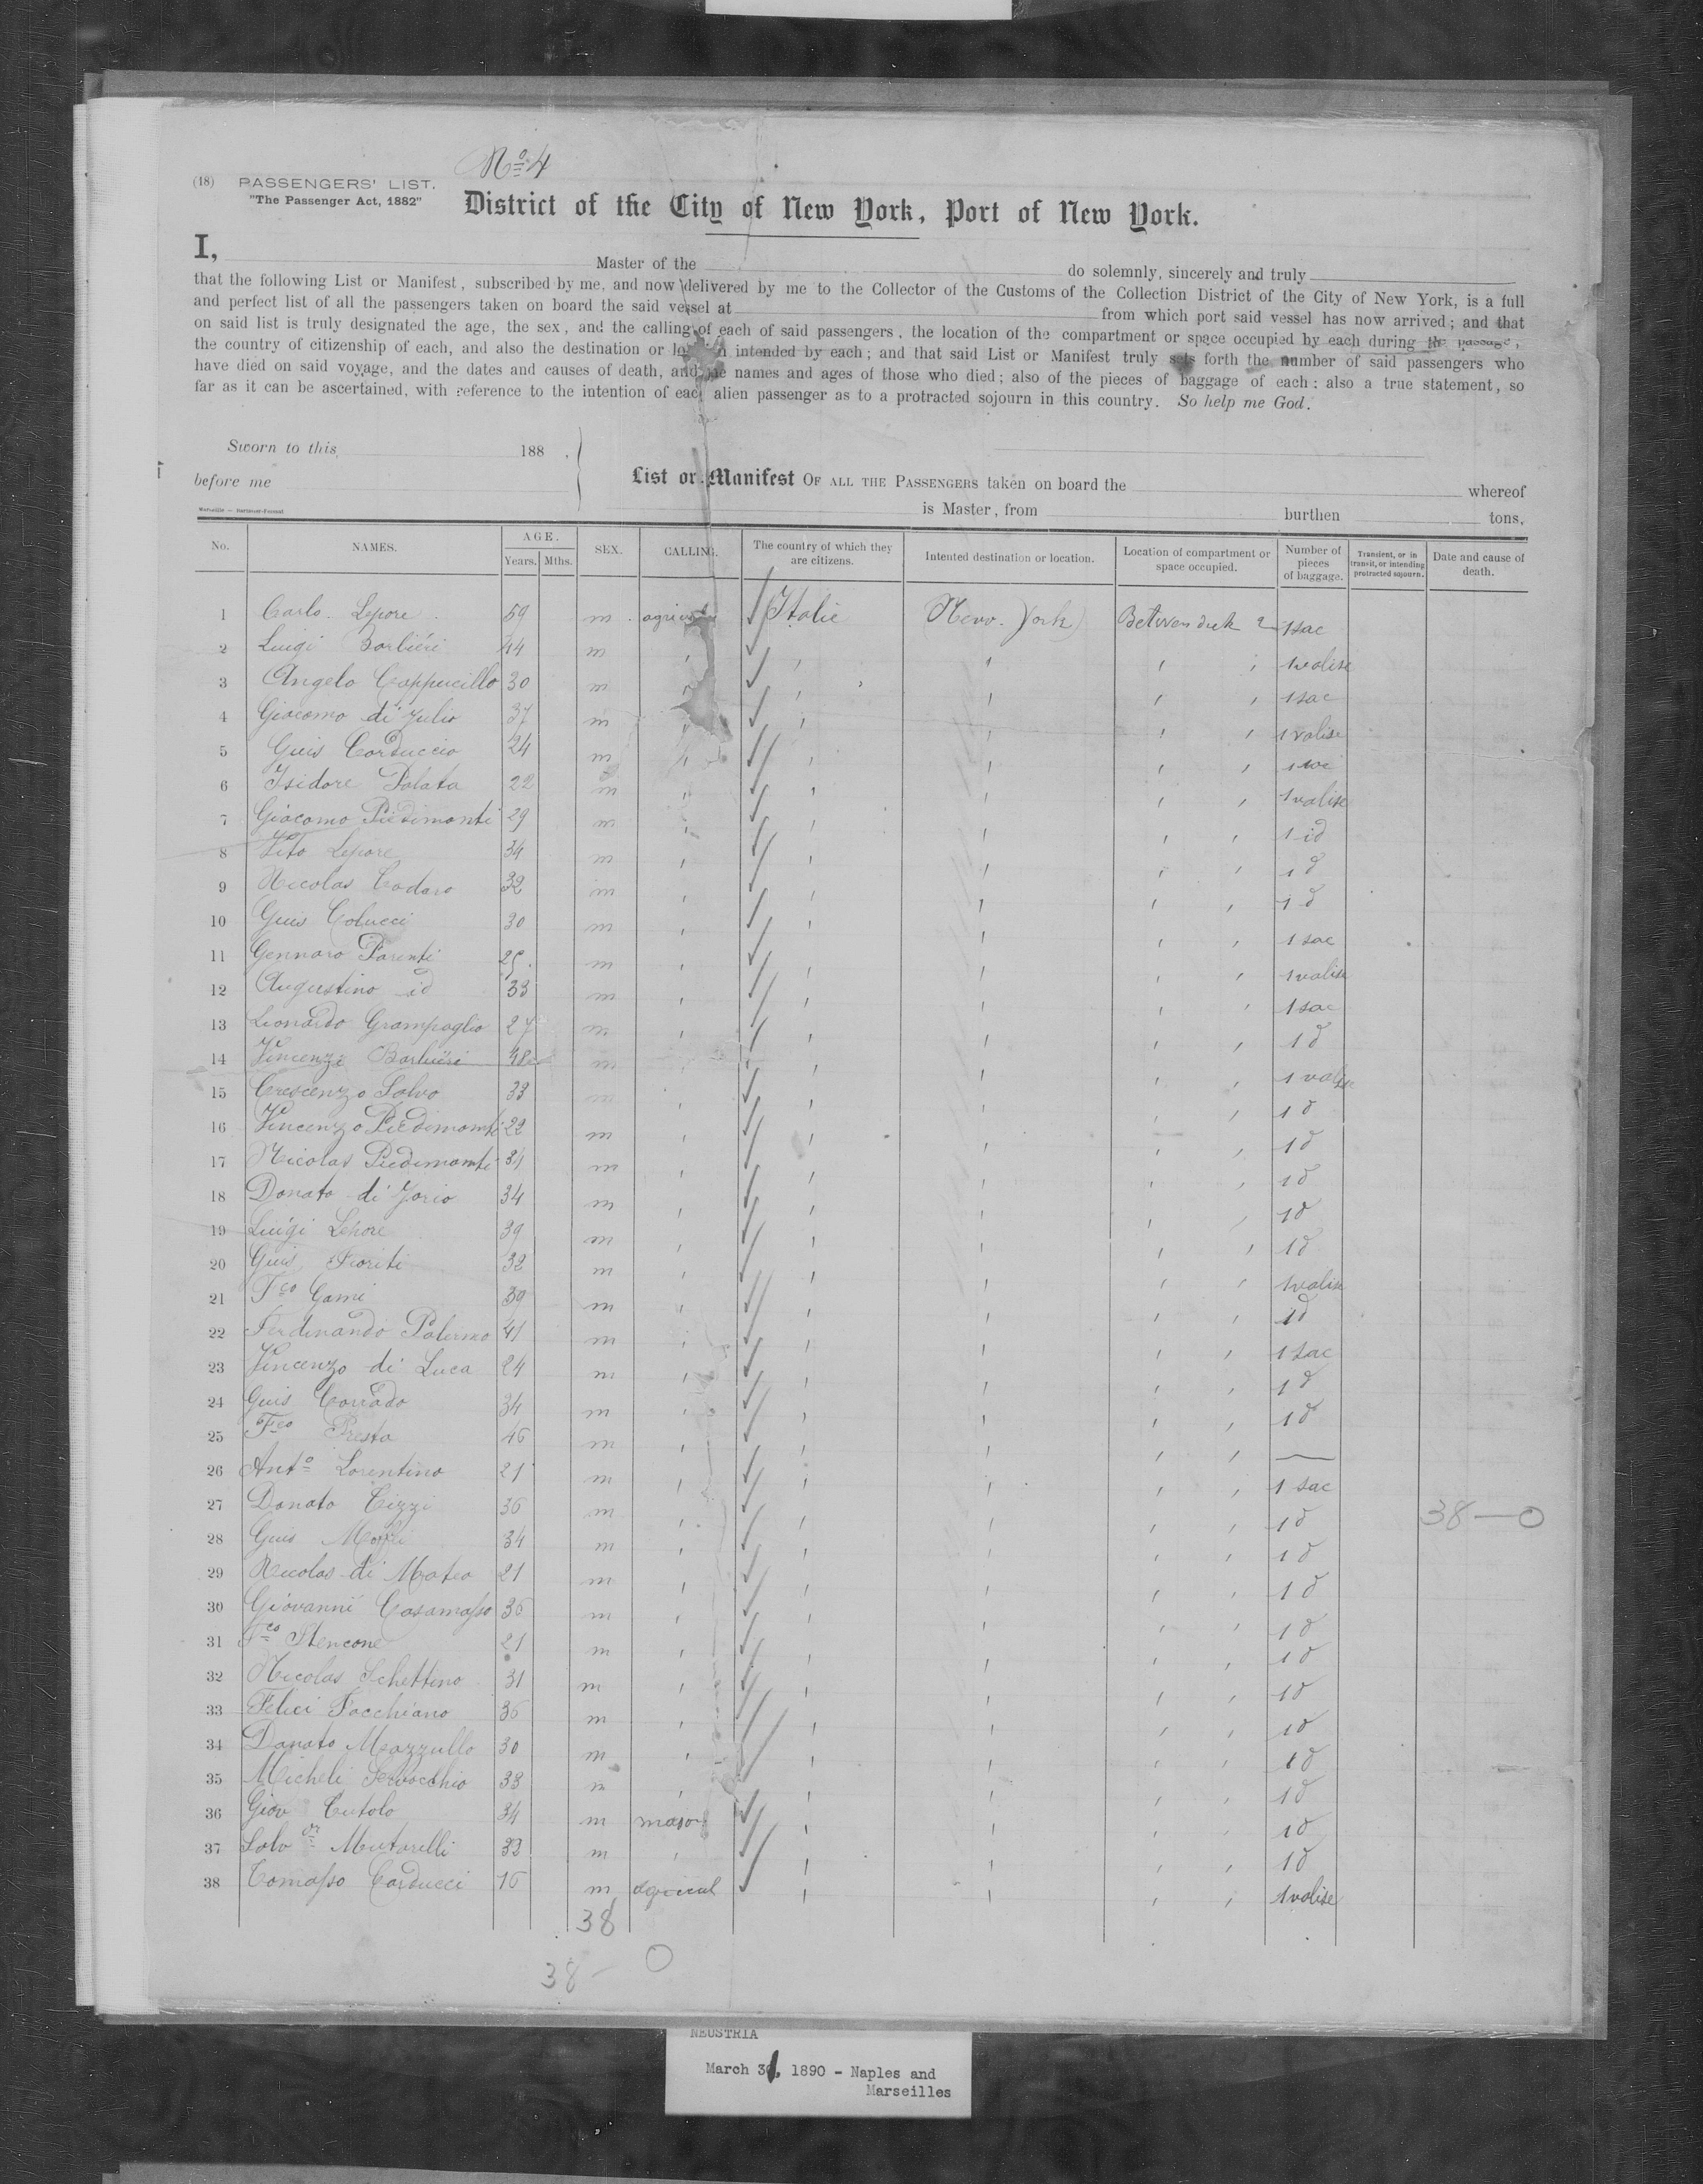 Nº 4
(18) PASSENGERS' LIST.
"The Passenger Act, 1882"
District of the City of New York, Port of New York.
I, Master of the do solemnly, sincerely and truly
that the following List or Manifest, subscribed by me, and now delivered by me to the Collector of the Customs of the Collection District of the City of New York, is a full
and perfect list of all the passengers taken on board the said vessel at from which port said vessel has now arrived; and that
on said list is truly designated the age, the sex, and the calling of each of said passengers, the location of the compartment or space occupied by each during the passage,
the country of citizenship of each, and also the destination or intended by each; and that said List or Manifest truly sets forth the number of said passengers who
have died on said voyage, and the dates and causes of death, and the names and ages of those who died; also of the pieces of baggage of each: also a true statement, so
far as it can be ascertained, with reference to the intention of each alien passenger as to a protracted sojourn in this country. So help me God.
Sworn to this 188 .
before me
List or Manifest OF ALL THE PASSENGERS taken on board the whereof
is Master, from burthen tons.
No. NAMES. AGE. Years. Mths. SEX. CALLING. The country of which they are citizens. Intented destination or location. Location of compartment or space occupied. Number of pieces of baggage. Transient, or in transit, or intending protracted sojourn. Date and cause of death.
1 Carlo Lepore 59 m Italie New York 1 sac
2 Luigi Barbiéri 44 m ' ' ' ' 1 valise
3 Angelo Cappucillo 30 m ' ' ' ' 1 sac
4 Giacomo di Julio 37 m ' ' ' ' 1 valise
5 Guis Carduccio 24 m ' ' ' ' ' 1 sac
6 Isidore Palata 22 m ' ' ' ' ' 1 valise
7 Giacomo Piedimonti 29 m ' ' ' ' ' 1 id
8 Vito Lepore 34 m ' ' ' ' ' 1 d
9 Nicolas Codaro 32 m ' ' ' ' ' 1 d
10 Guis Colucci 30 m ' ' ' ' ' 1 sac
11 Gennaro Parenti 25 m ' ' ' ' ' 1 valise
12 Augustino id 33 m ' ' ' ' ' 1 sac
13 Leonardo Grampaglio 27 m ' ' ' ' ' 1 d
14 Vincenzo Barbiéri 48 m ' ' ' ' ' 1 valise
15 Crescenzo Salvo 33 m ' ' ' ' ' 1 d
16 Vincenzo Piedimonti 22 m ' ' ' ' ' 1 d
17 Nicolas Piedimonti 34 m ' ' ' ' ' 1 d
18 Donato di Jorio 34 m ' ' ' ' ' 1 d
19 Luigi Lepore 39 m ' ' ' ' ' 1 d
20 Guis Fioriti 32 m ' ' ' ' ' 1 valise
21 Fco Gami 39 m ' ' ' ' ' 1 d
22 Ferdinando Palermo 41 m ' ' ' ' ' 1 sac
23 Vincenzo di Luca 24 m ' ' ' ' ' 1 d
24 Guis Corrado 34 m ' ' ' ' ' 1 d
25 Fco Presta 46 m ' ' ' ' ' —
26 Anto Lorentino 21 m ' ' ' ' ' 1 sac
27 Donato Cizzi 36 m ' ' ' ' ' 1 d 38—0
28 Guis 34 m ' ' ' ' ' 1 d
29 Nicolas di Mateo 21 m ' ' ' ' ' 1 d
30 Giovanni Casamasso 36 m ' ' ' ' ' 1 d
31 Fco Stencone 21 m ' ' ' ' ' 1 d
32 Nicolas Schettino 31 m ' ' ' ' ' 1 d
33 Felici Facchiano 36 m ' ' ' ' ' 1 d
34 Donato Mazzullo 30 m ' ' ' ' ' 1 d
35 Micheli 38 m ' ' ' ' ' 1 d
36 Giov Cutolo 34 m mason ' ' ' ' 1 d
37 Mutarelli 32 m ' ' ' ' ' 1 d
38 Tomasso Carducci 16 m agricul ' ' ' ' 1 valise
38
38 — 0
NEUSTRIA
March 31, 1890 - Naples and
Marseilles